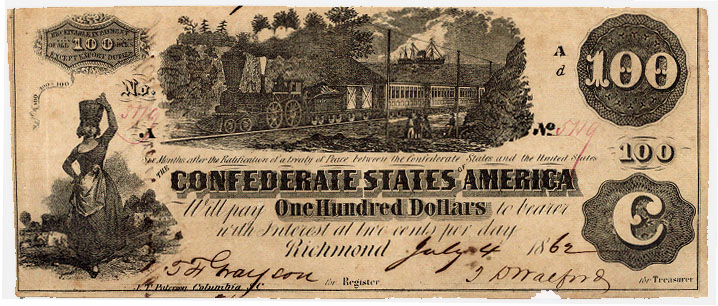 RECEIVABLE IN PAYMENT
OF ALL 100 DUES
EXCEPT EXPORT DUTIES
No.
A
d
100
No 5719
Six Months after the Ratification of a treaty of Peace between the Confederate States and the United States
100
THE CONFEDERATE STATES OF AMERICA
Will pay One Hundred Dollars to bearer
with Interest at two cents per day
Richmond July 4 1862
C
for Register
for Treasurer
J.T. Paterson Columbia S.C